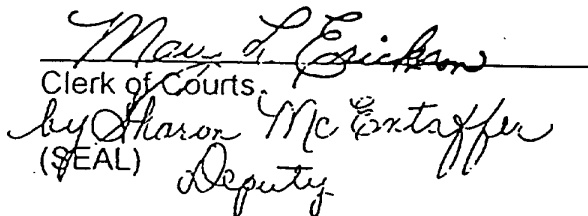 Mary L. Erickson
Clerk of Courts
by Sharon McEntaffer
(SEAL)
Deputy